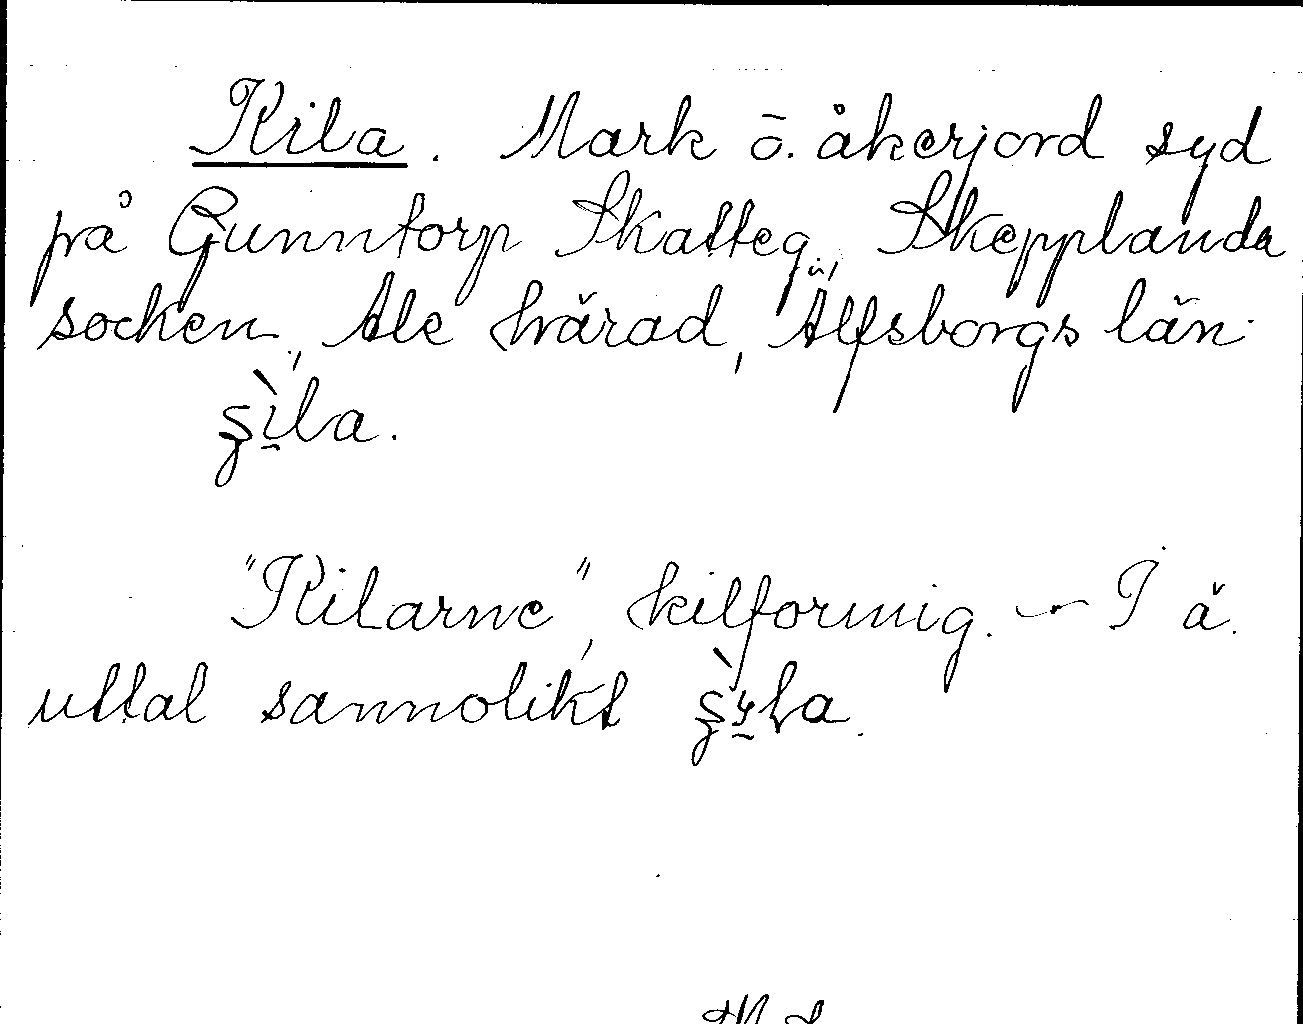 Kila. Mark ō. åkerjord syd
på Gunntorp Skatteg., Skepplanda
socken, Ale härad, Älfsborgs län.
ʂ̀ila.
"Kilarne", kilformig. — I ä.
uttal sannolikt ʂ̀yla.